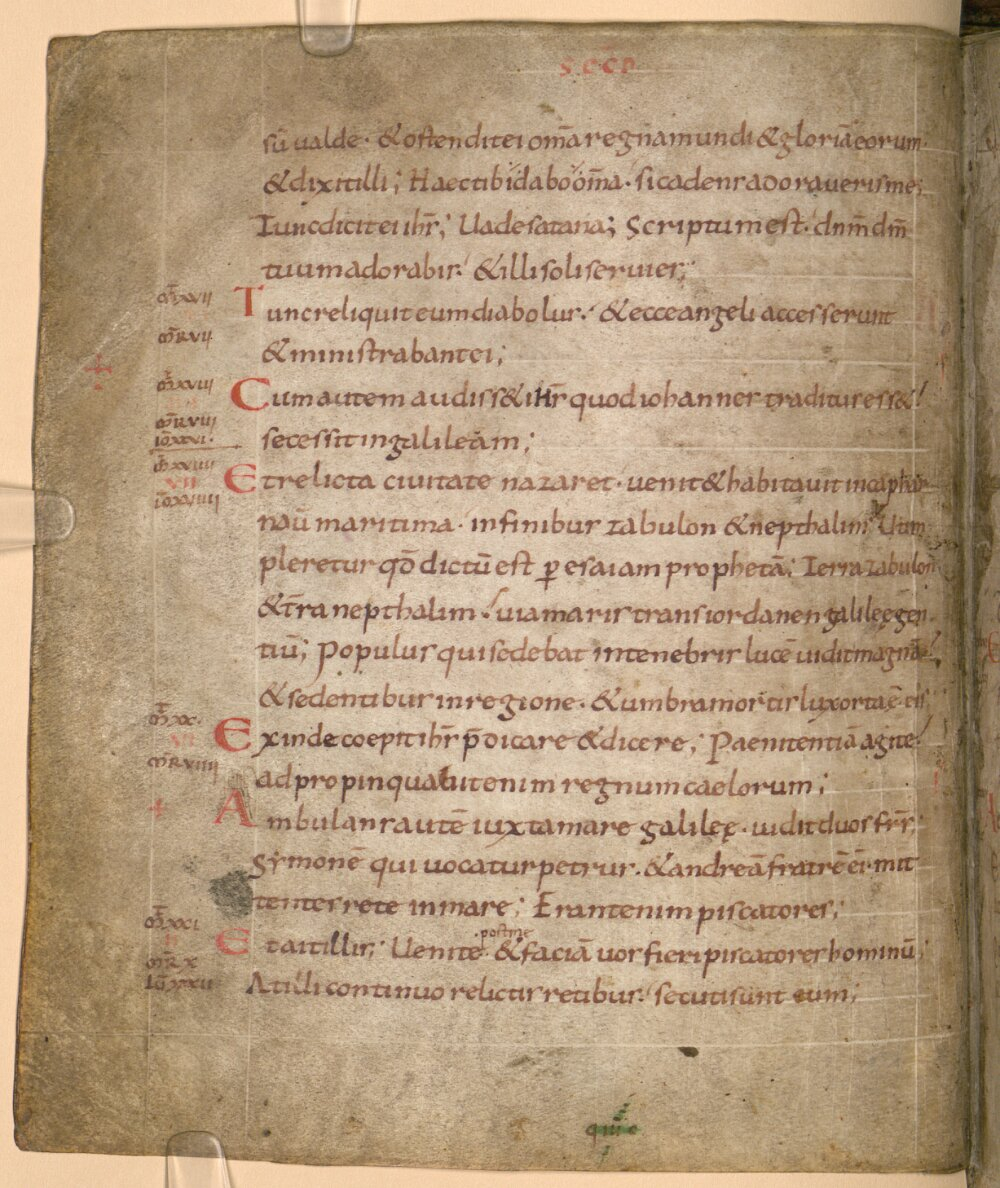 SCCD
sū ualde · & ostendit ei om̄a regna mundi & gloriā eorum·
& dixit illi; Haec tibi dabo om̄a · si cadens adoraueris me;
Tunc dicit ei ihs̄; Uade satana; Scriptum est · dnm̄ dm̄
tuum adorabis. & illi soli seruies;
m̄r xvii
Tunc reliquit eum diabolus. & ecce angeli accesserunt
m̄r vii
& ministrabant ei;
xviii
Cum autem audiss& ihs̄ quod iohannes traditus ess&
m̄r viii
secessit in galileam;
xxviiii
vii
Et relicta ciuitate nazaret · uenit & habitauit in caphar
naū maritima · in finibus zabulon & nepthalim. Ut im
pleretur qd̄ dictū est ꝑ esaiam prophetā; Terra zabulon
& t̄ra nepthalim uia maris trans iordanen galileę gen
tiū; Populus qui sedebat in tenebris lucē uidit magnā
& sedentibus in regione · & umbra mortis lux orta ē eis
xx·
Exinde coepit ihs̄ p̄dicare & dicere; Paenitentiā agite
m̄r viiii
adpropinquabit enim regnum caelorum;
Ambulans autē iuxta mare galileę · uidit duos frs̄;
symonē qui uocatur petrus · & andreā fratrē ei· mit
tentes rete in mare; Erant enim piscatores;
m̄ xxi
Et ait illis; Uenite post me & faciā uos fieri piscatores hominū;
m̄r x
At illi continuo relictis retibus. secuti sunt eum;